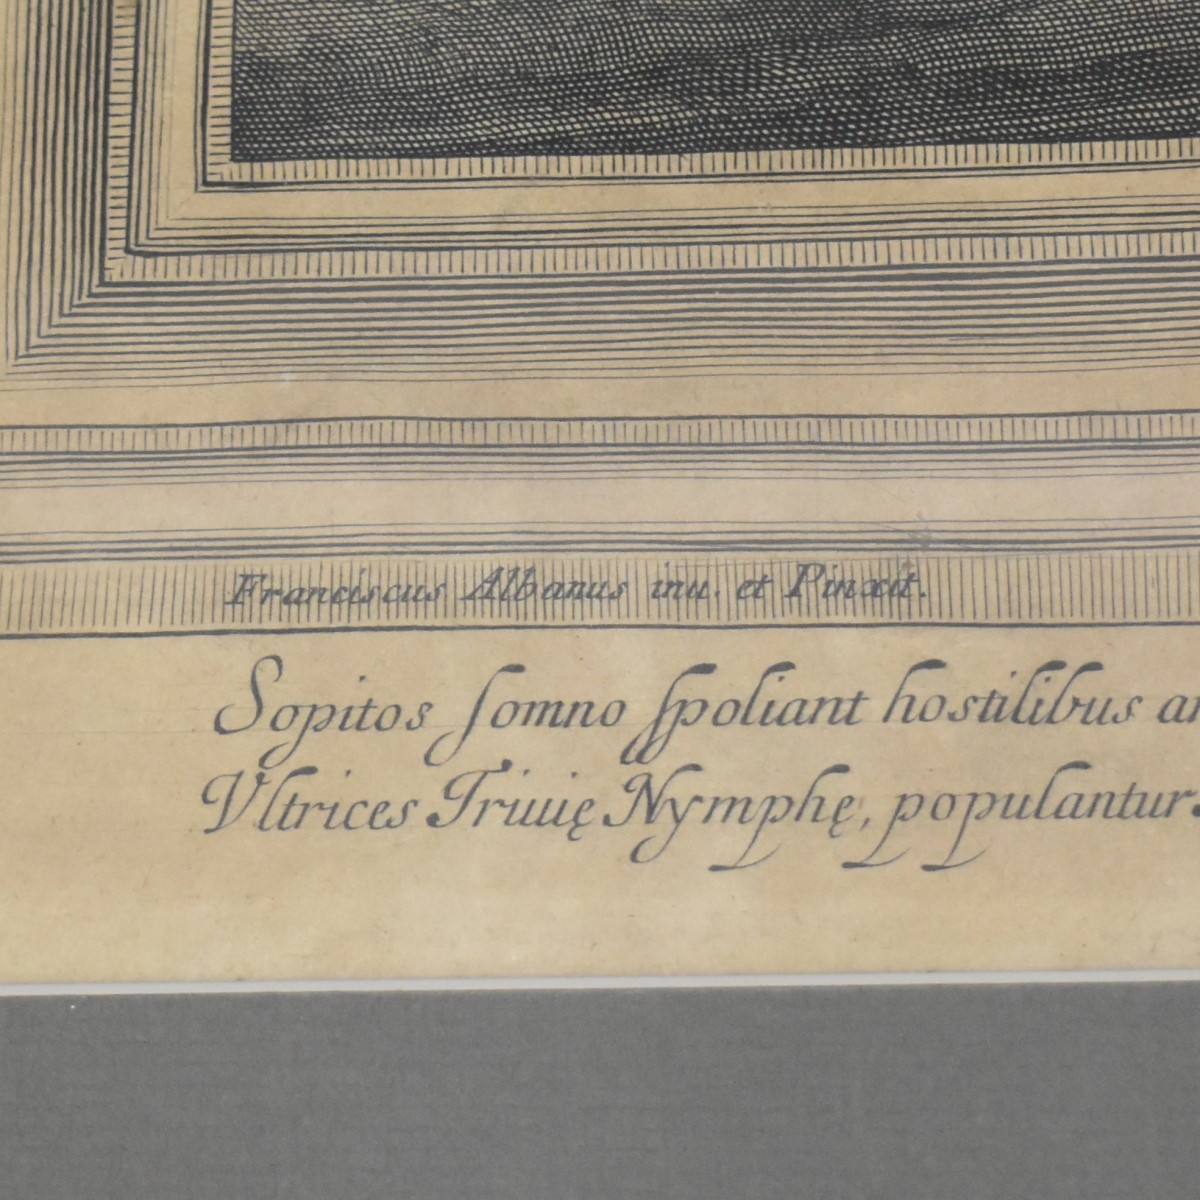 Franciscus Albanus inu. et Pinxit.
Sopitos ſomno ſpoliant hostilibus ar
Vltrices Triuię Nymphę, populantur